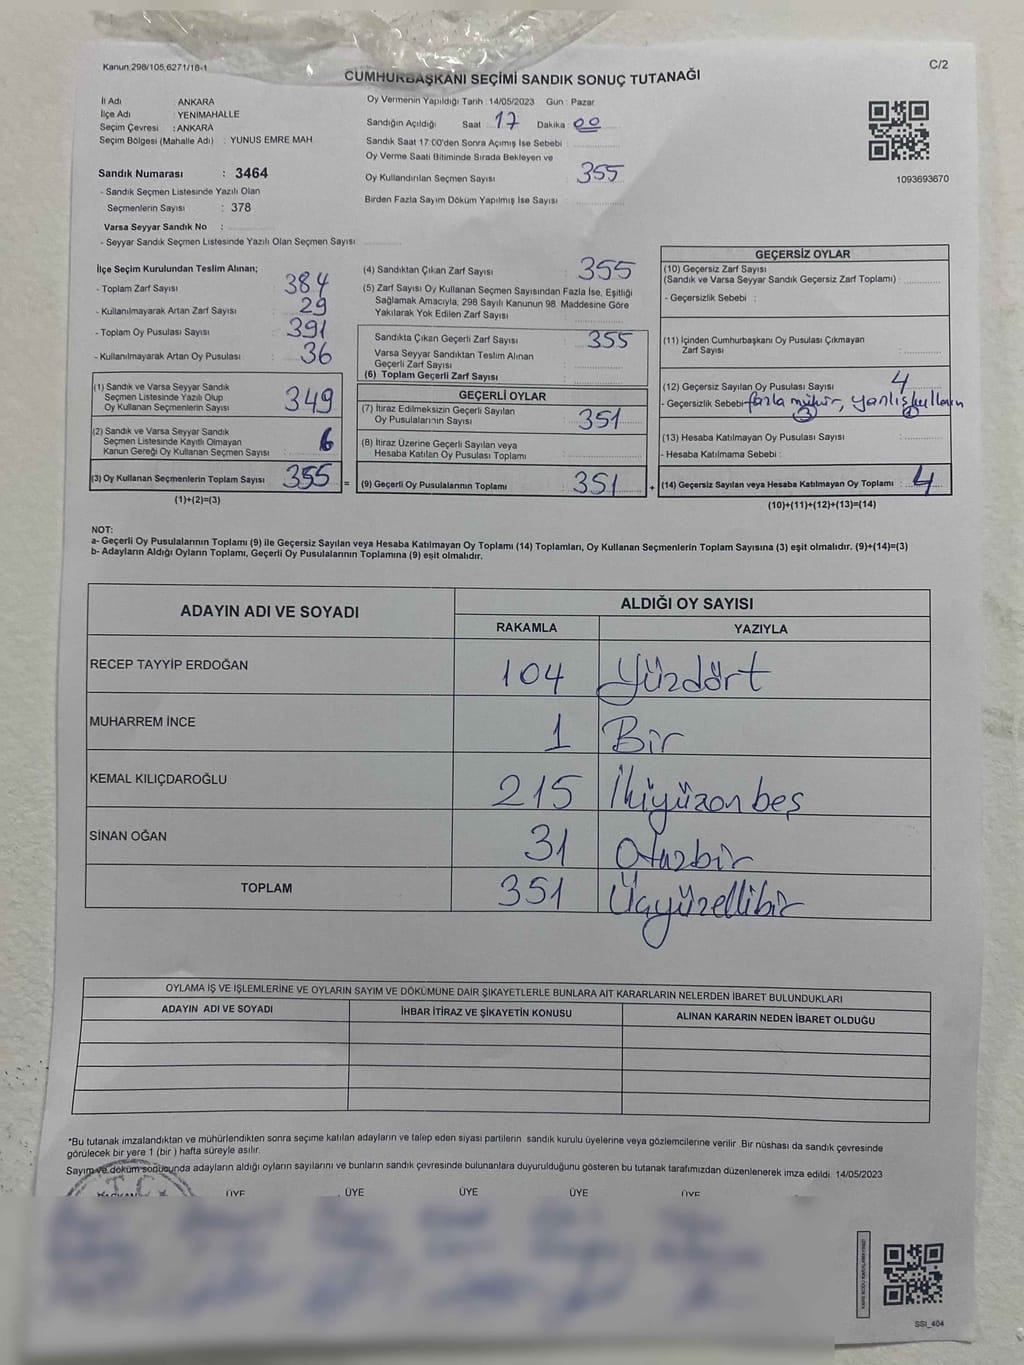 Kanun 298/105,6271/18-1
C/2
CUMHURBAŞKANI SEÇİMİ SANDIK SONUÇ TUTANAĞI
İl Adı : ANKARA
İlçe Adı : YENİMAHALLE
Seçim Çevresi : ANKARA
Seçim Bölgesi (Mahalle Adı) : YUNUS EMRE MAH
Sandık Numarası : 3464
- Sandık Seçmen Listesinde Yazılı Olan
Seçmenlerin Sayısı : 378
Varsa Seyyar Sandık No :
- Seyyar Sandık Seçmen Listesinde Yazılı Olan Seçmen Sayısı :
Oy Vermenin Yapıldığı Tarih : 14/05/2023 Gün : Pazar
Sandığın Açıldığı Saat 17 Dakika 00
Sandık Saat 17:00'den Sonra Açımış İse Sebebi :
Oy Verme Saati Bitiminde Sırada Bekleyen ve
Oy Kullandırılan Seçmen Sayısı : 355
Birden Fazla Sayım Döküm Yapılmış İse Sayısı :
1093693670
İlçe Seçim Kurulundan Teslim Alınan;
- Toplam Zarf Sayısı : 384
- Kullanılmayarak Artan Zarf Sayısı : 29
- Toplam Oy Pusulası Sayısı : 391
- Kullanılmayarak Artan Oy Pusulası : 36
(1) Sandık ve Varsa Seyyar Sandık
Seçmen Listesinde Yazılı Olup
Oy Kullanan Seçmenlerin Sayısı : 349
(2) Sandık ve Varsa Seyyar Sandık
Seçmen Listesinde Kayıtlı Olmayan
Kanun Gereği Oy Kullanan Seçmen Sayısı : 6
(3) Oy Kullanan Seçmenlerin Toplam Sayısı : 355 =
(1)+(2)=(3)
(4) Sandıktan Çıkan Zarf Sayısı : 355
(5) Zarf Sayısı Oy Kullanan Seçmen Sayısından Fazla İse, Eşitliği
Sağlamak Amacıyla; 298 Sayılı Kanunun 98. Maddesine Göre
Yakılarak Yok Edilen Zarf Sayısı :
Sandıkta Çıkan Geçerli Zarf Sayısı : 355
Varsa Seyyar Sandıktan Teslim Alınan
Geçerli Zarf Sayısı :
(6) Toplam Geçerli Zarf Sayısı :
GEÇERLİ OYLAR
(7) İtiraz Edilmeksizin Geçerli Sayılan
Oy Pusulalarının Sayısı : 351
(8) İtiraz Üzerine Geçerli Sayılan veya
Hesaba Katılan Oy Pusulası Toplamı :
(9) Geçerli Oy Pusulalarının Toplamı : 351 +
GEÇERSİZ OYLAR
(10) Geçersiz Zarf Sayısı
(Sandık ve Varsa Seyyar Sandık Geçersiz Zarf Toplamı) :
- Geçersizlik Sebebi :
(11) İçinden Cumhurbaşkanı Oy Pusulası Çıkmayan
Zarf Sayısı :
(12) Geçersiz Sayılan Oy Pusulası Sayısı : 4
- Geçersizlik Sebebi : fazla mühür, yanlış kullanım
(13) Hesaba Katılmayan Oy Pusulası Sayısı :
- Hesaba Katılmama Sebebi :
(14) Geçersiz Sayılan veya Hesaba Katılmayan Oy Toplamı : 4
(10)+(11)+(12)+(13)=(14)
NOT:
a- Geçerli Oy Pusulalarının Toplamı (9) ile Geçersiz Sayılan veya Hesaba Katılmayan Oy Toplamı (14) Toplamları, Oy Kullanan Seçmenlerin Toplam Sayısına (3) eşit olmalıdır. (9)+(14)=(3)
b- Adayların Aldığı Oyların Toplamı, Geçerli Oy Pusulalarının Toplamına (9) eşit olmalıdır.
ADAYIN ADI VE SOYADI
ALDIĞI OY SAYISI
RAKAMLA YAZIYLA
RECEP TAYYİP ERDOĞAN 104 Yüzdört
MUHARREM İNCE 1 Bir
KEMAL KILIÇDAROĞLU 215 İkiyüzonbeş
SİNAN OĞAN 31 Otuzbir
TOPLAM 351 Üçyüzellibir
OYLAMA İŞ VE İŞLEMLERİNE VE OYLARIN SAYIM VE DÖKÜMÜNE DAİR ŞİKAYETLERLE BUNLARA AİT KARARLARIN NELERDEN İBARET BULUNDUKLARI
ADAYIN ADI VE SOYADI İHBAR İTİRAZ VE ŞİKAYETİN KONUSU ALINAN KARARIN NEDEN İBARET OLDUĞU
*Bu tutanak imzalandıktan ve mühürlendikten sonra seçime katılan adayların ve talep eden siyasi partilerin sandık kurulu üyelerine veya gözlemcilerine verilir. Bir nüshası da sandık çevresinde
görülecek bir yere 1 (bir) hafta süreyle asılır.
Sayım ve döküm sonucunda adayların aldığı oyların sayılarını ve bunların sandık çevresinde bulunanlara duyurulduğunu gösteren bu tutanak tarafımızdan düzenlenerek imza edildi. 14/05/2023
T.C.
BAŞKAN ÜYE ÜYE ÜYE ÜYE ÜYE
SSI_404